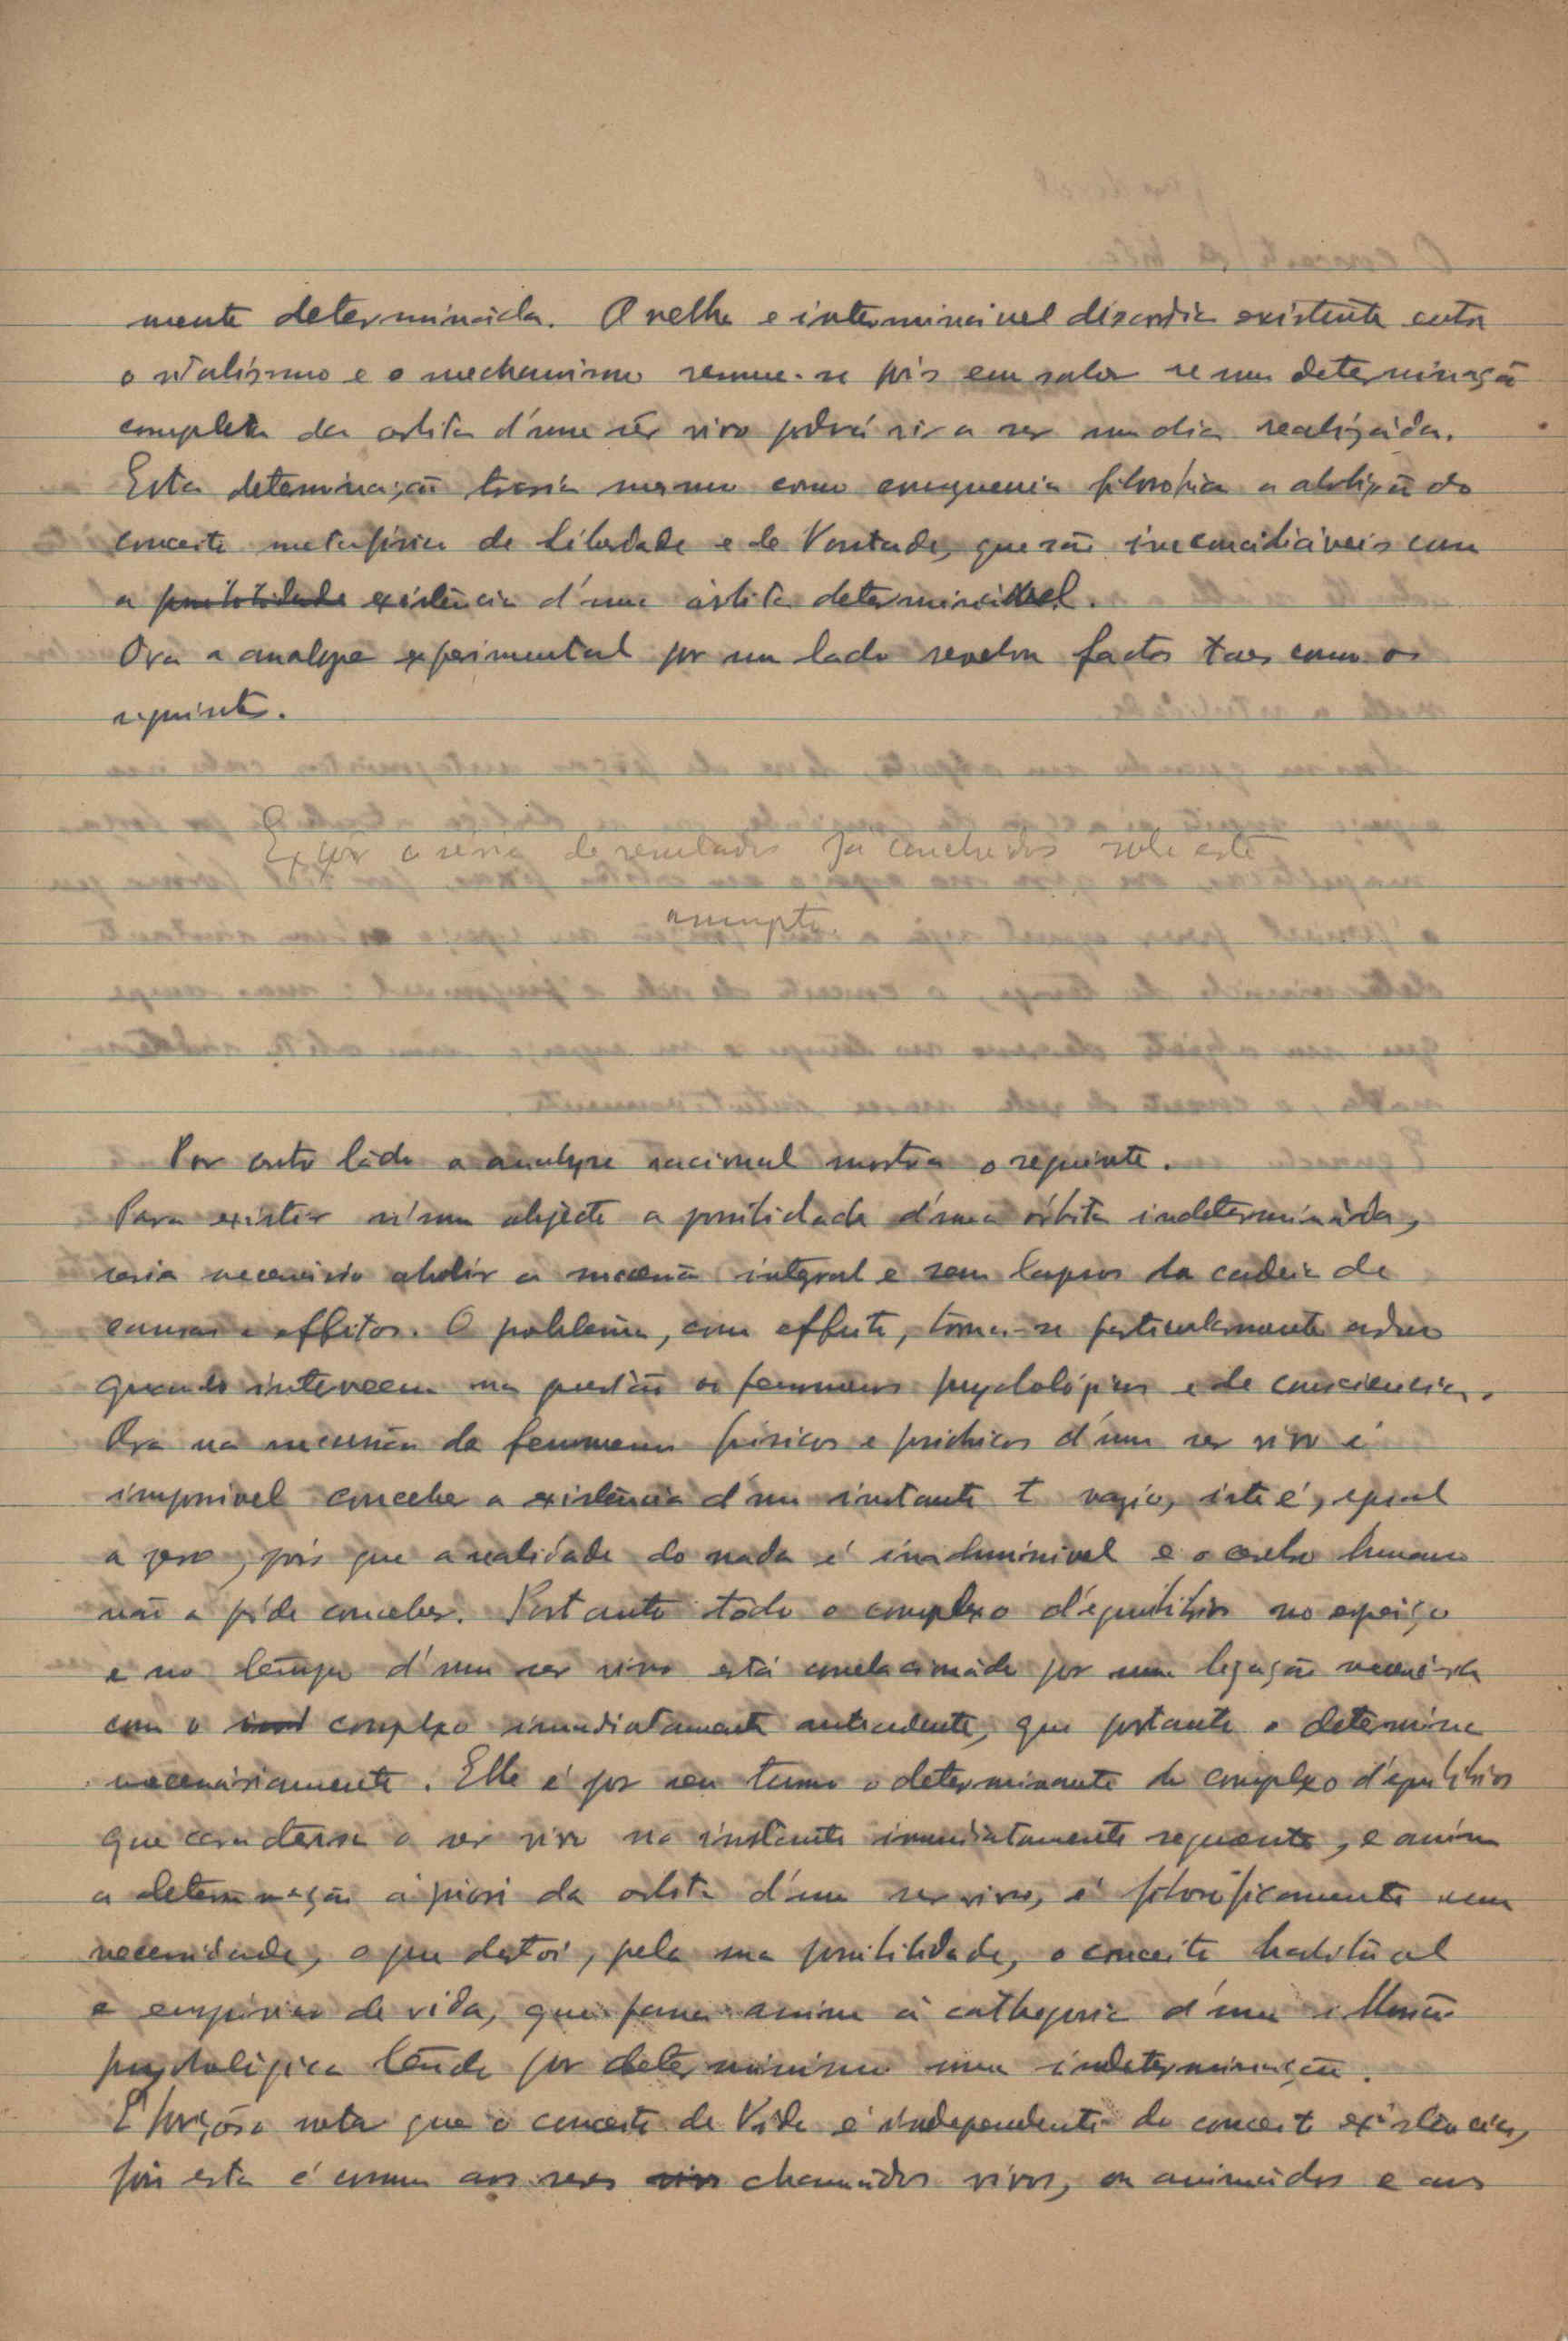 mente determinada. A velha e interminavel discordia existente entre
o vitalismo e o mechanismo resume-se pois em saber se uma determinação
completa da orbita d'um sêr vivo poderá vir a ser um dia realizada.
Esta determinação traria mesmo como consequencia filosofica a abolição do
conceito metafisico de Liberdade e de Vontade, que são inconciliáveis com
a possibilidade existência d'uma órbita determinável.
Ora a analyse experimental por um lado revelou factos taes como os
seguintes.
Expôr a série de resultados já conhecidos sobre este
assumpto.
Por outro lado a analyse racional mostra o seguinte.
Para existir n'um objecto a possibilidade d'uma órbita indeterminada,
seria necessário abolir a sucessão integral e sem lapsos da cadeia de
causas e effeitos. O poblema, com effeito, torna-se particularmente arduo
quando interveem na questão os fenomenos psychológicos e de consciencia.
Ora na sucessão de fenomenos fisicos e psichicos d'um ser vivo é
impossivel conceber a existência d'um instante t vazio, isto é, egual
a zero, pois que a realidade do nada é inadmissivel e o cerebro humano
não a póde conceber. Portanto todo o complexo d'equilibrios no espaço
e no tempo d'um ser vivo está correlacionado por uma ligação necessária
com o complexo immediatamente antecedente, que portanto o determina
necessáriamente. Elle é por seu turno o determinante do complexo d'equilibrios
que caracterisa o ser vivo no instante immediatamente seguente, e assim
a determinação á priori da orbita d'um ser vivo, é filosóficamente uma
necessidade, o que destroi, pela sua possibilidade, o conceito habitual
e empirico de vida, que passa assim á cathegoria d'uma illusão
psychológica tendo por determinismo uma indeterminação.
É forçôso notar que o conceito de Vida é independente do conceito existência,
pois esta é comum aos seres vivos chamados vivos, ou animados e aos